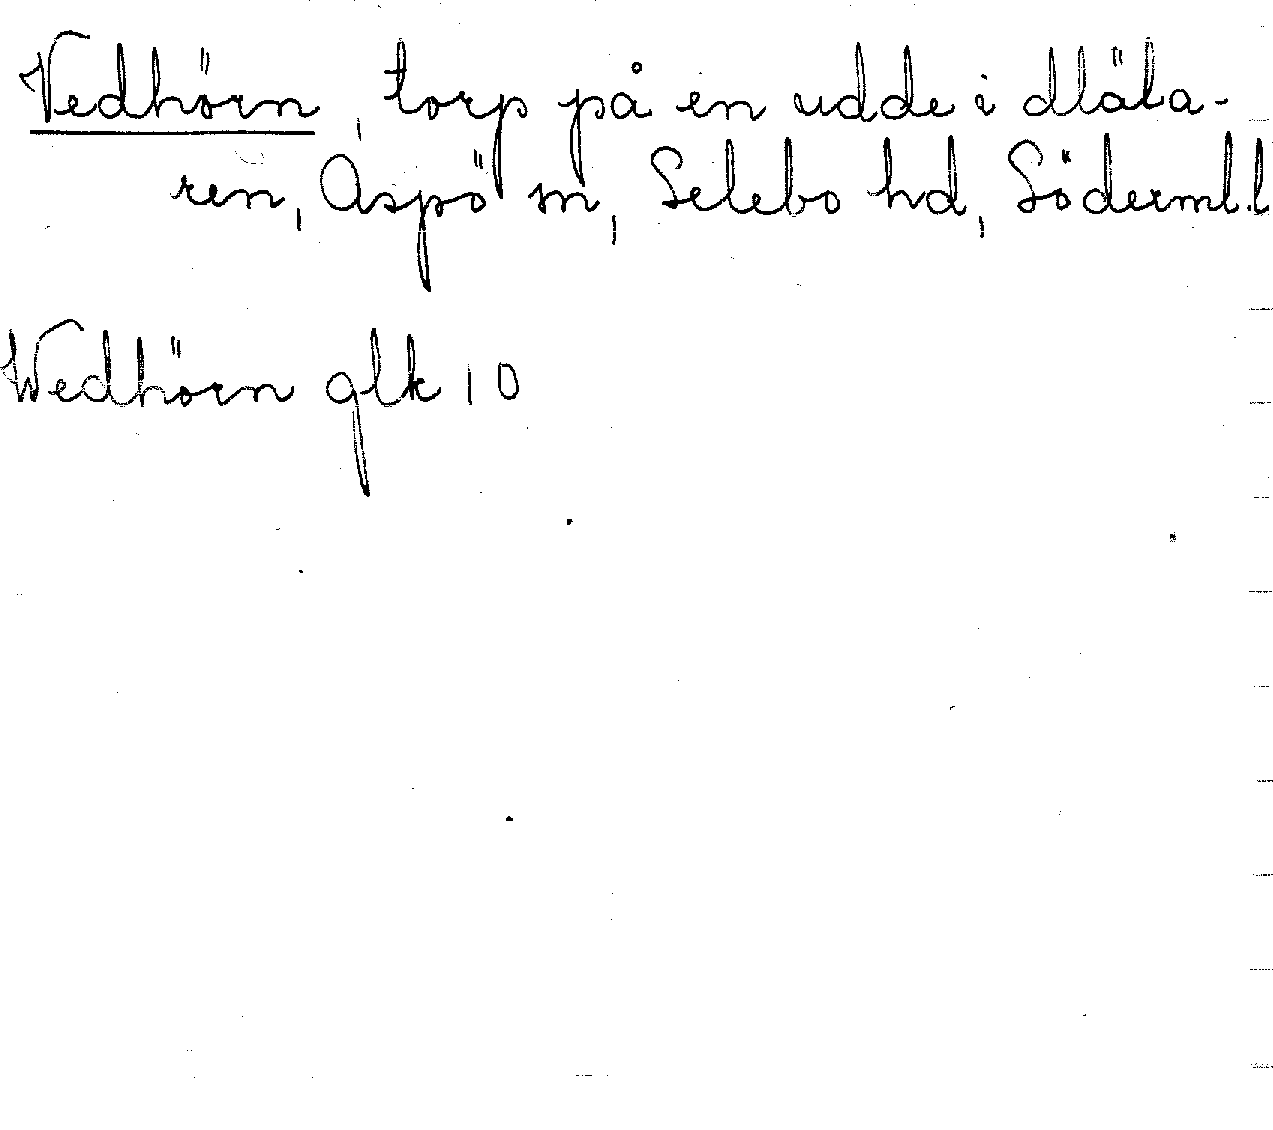 Vedhörn, torp på en udde i Mäla-
ren, Aspö sn, Selebo hd, Söderml. l
Wedhörn glk 10